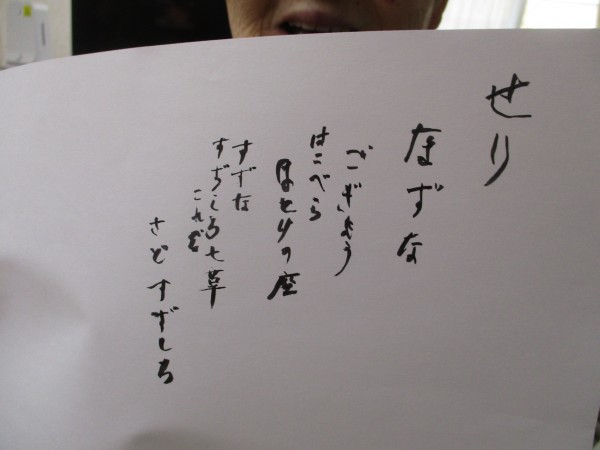 せり
なずな
ごぎょう
はこべら
ほとけの座
すずな
すずしろ七草
これぞ
さとすずしろ